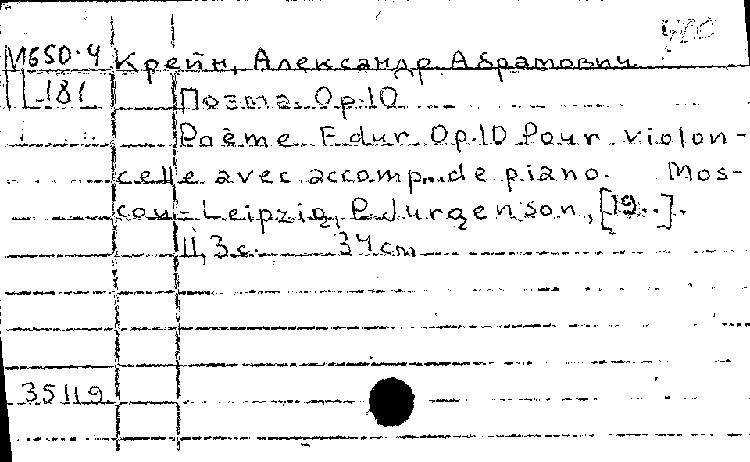 М650.4 Крейн, Александр Абрамович
181 Поэма. Op.10
Poème F dur Op.10 Pour violon-
celle avec accomp. de piano. Mos-
cou - Leipzig, P. Jurgenson, [19..].
11, 3 с. 34 cm
35119